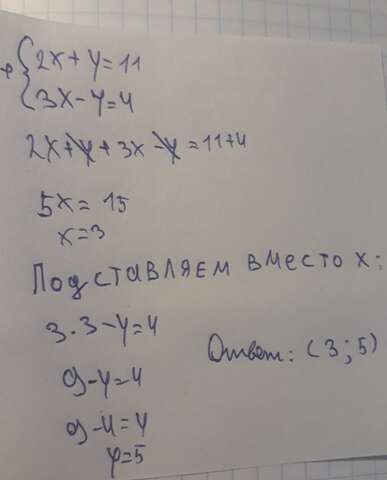 + { 2x + y = 11
3x - y = 4
2x + y + 3x - y = 11 + 4
5x = 15
x = 3
Подставляем вместо x:
3 · 3 - y = 4
9 - y = 4
9 - 4 = y
y = 5
Ответ: (3; 5)